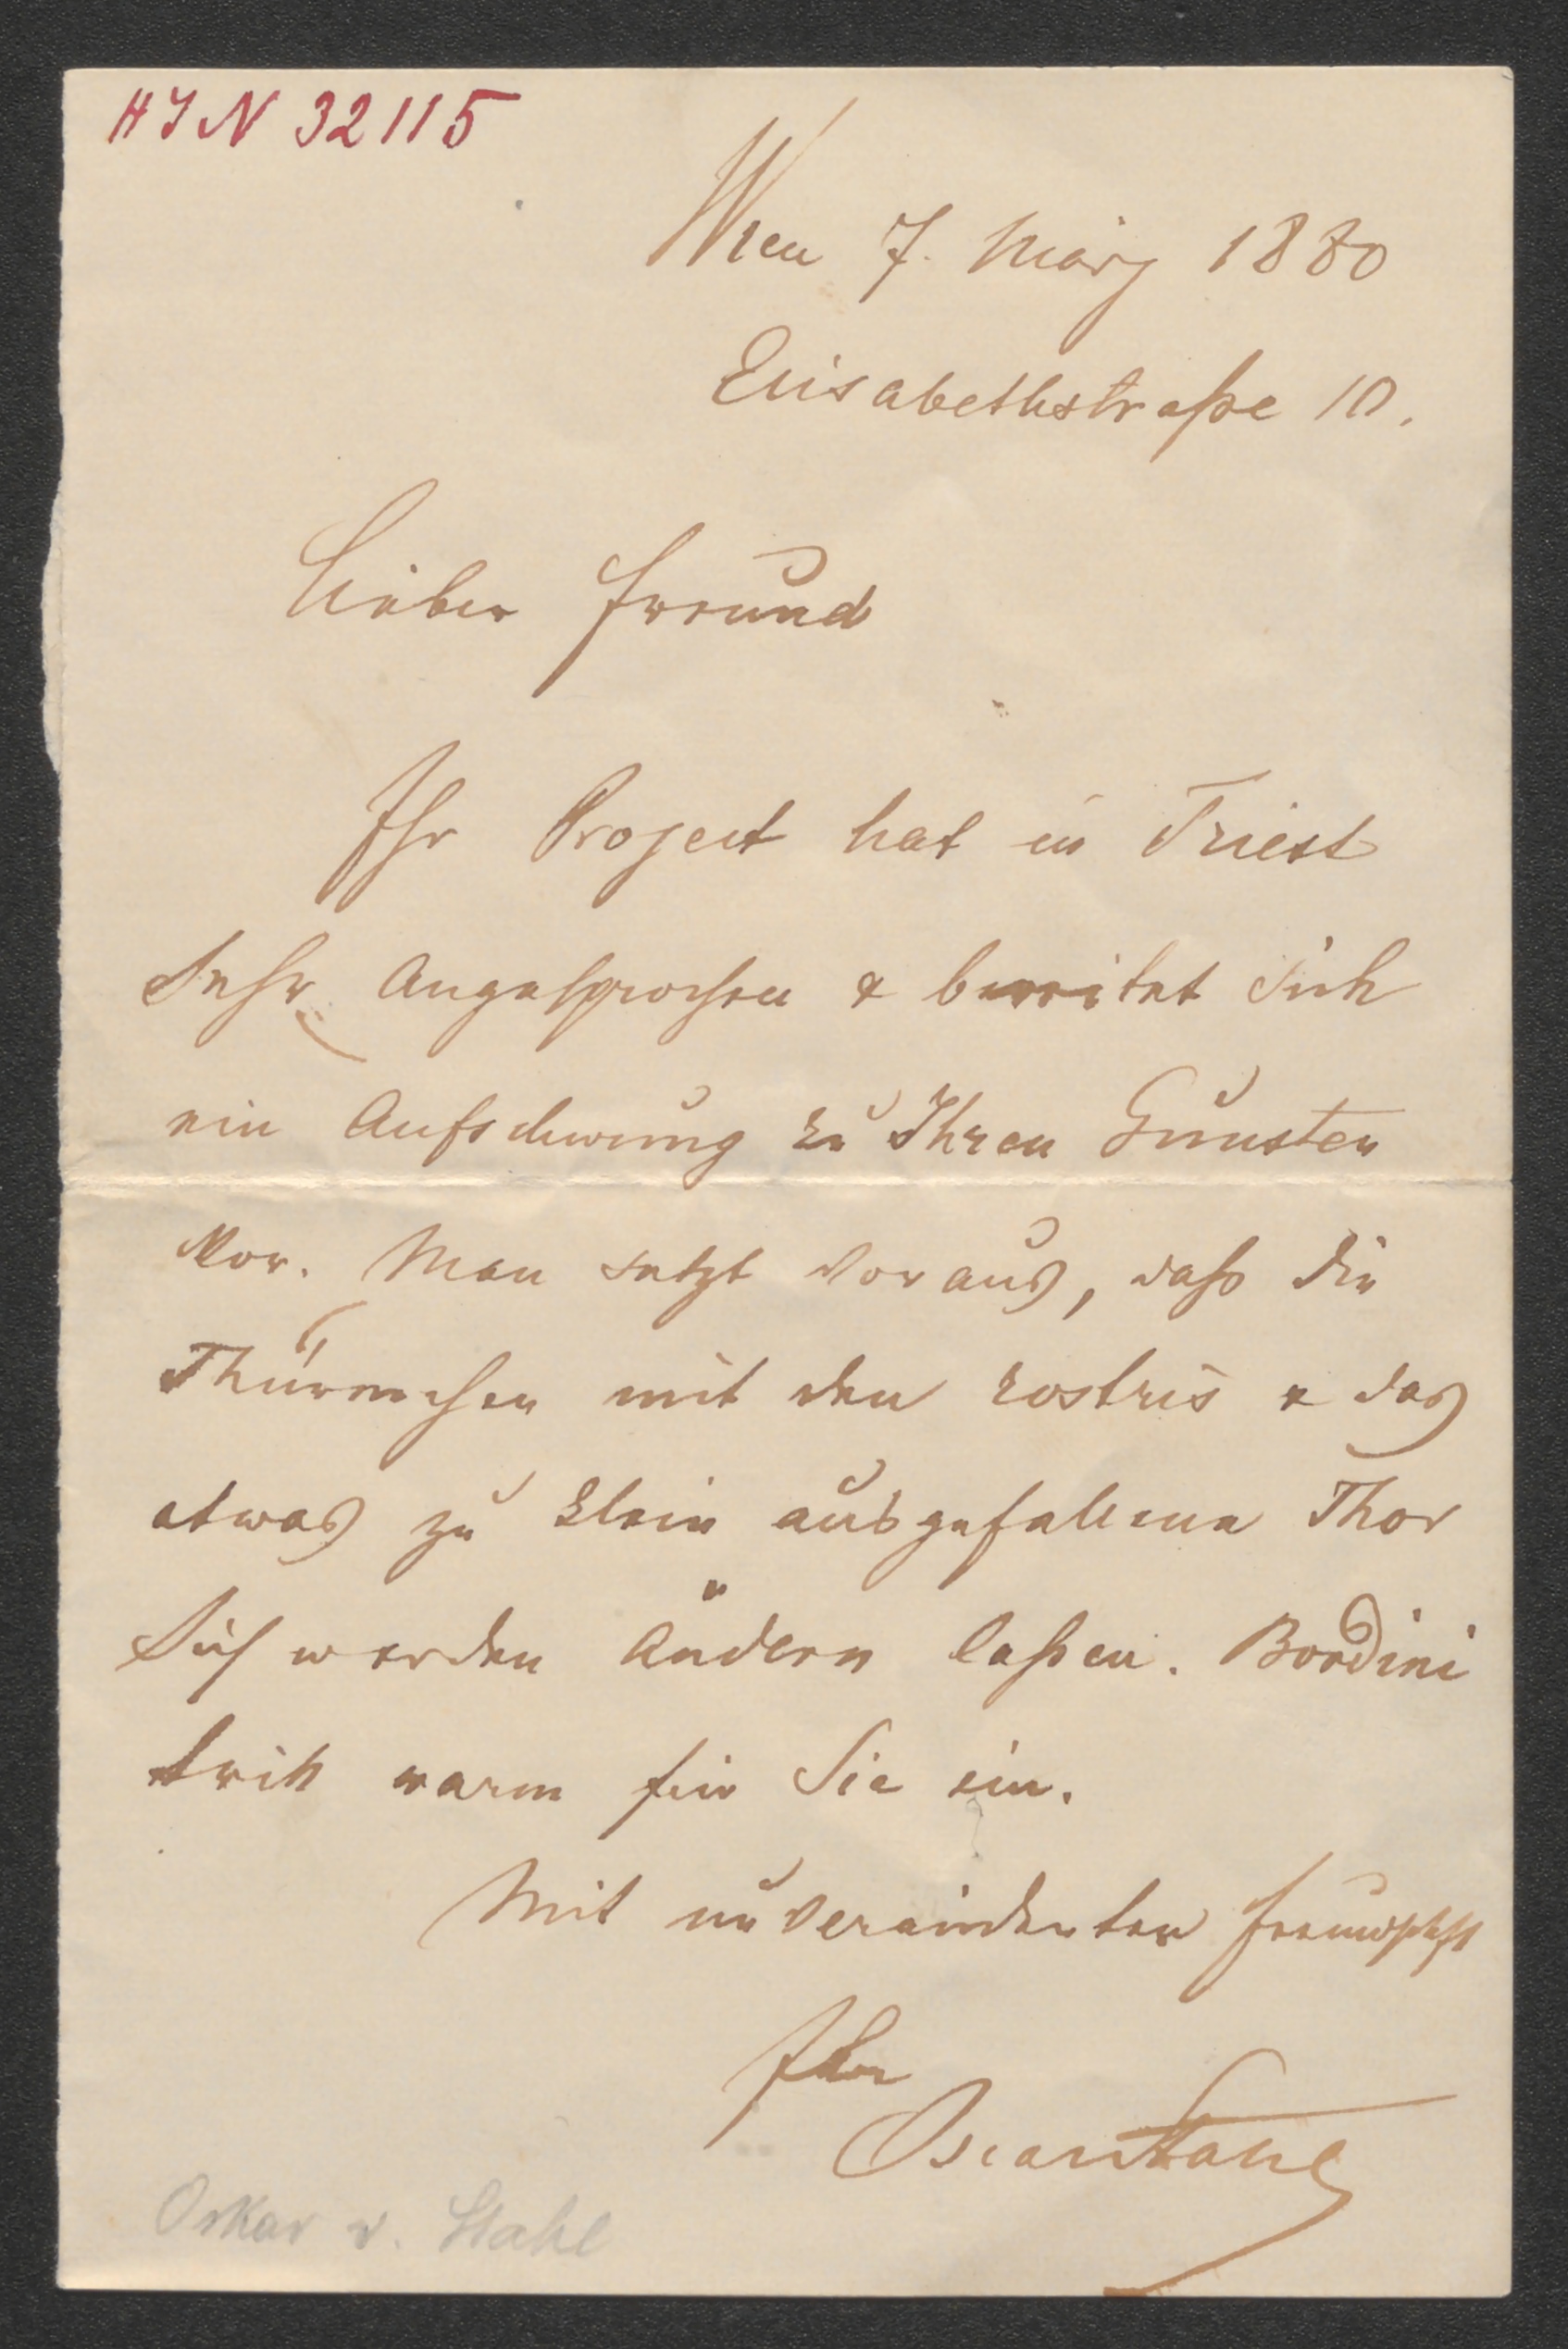 HIN 32115
Wien 7. März 1880
Elisabethstraße 10.
Lieber Freund
Ihr Project hat in Triest
Sehr Angesprochen & bereitet Sich
ein Aufschwung zu Ihren Gunsten
Vor. Man setzt Voraus, daß die
Thürmchen mit den rostris & das
etwas zu klein ausgefallene Thor
Sich werden Ändern laßen. Bordini
tritt warm für Sie ein.
Mit unveränderter Freundschft
Ihr
Oscar Stahl
Oskar v. Stahl